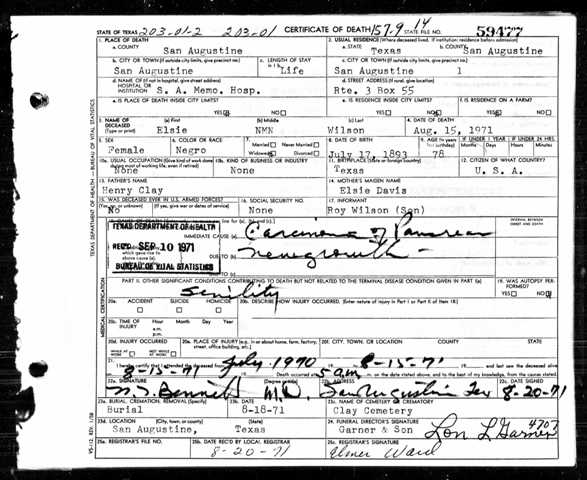 203-01-2 203-01 157-9 14
STATE OF TEXAS CERTIFICATE OF DEATH STATE FILE NO. 59477
1. PLACE OF DEATH 2. USUAL RESIDENCE (Where deceased lived. If institution: residence before admission)
a. COUNTY San Augustine a. STATE Texas b. COUNTY San Augustine
b. CITY OR TOWN (If outside city limits, give precinct no.) c. LENGTH OF STAY c. CITY OR TOWN (If outside city limits, give precinct no.)
San Augustine Life San Augustine 1
d. NAME OF (If not in hospital, give street address) HOSPITAL OR INSTITUTION d. STREET ADDRESS (If rural, give location)
S. A. Memo. Hosp. Rte. 3 Box 55
e. IS PLACE OF DEATH INSIDE CITY LIMITS? e. IS RESIDENCE INSIDE CITY LIMITS? f. IS RESIDENCE ON A FARM?
YES NO YES NO YES NO
3. NAME OF DECEASED (Type or print) (a) First (b) Middle (c) Last 4. DATE OF DEATH
Elsie NMN Wilson Aug. 15, 1971
5. SEX 6. COLOR OR RACE 7. Married Never Married 8. DATE OF BIRTH 9. AGE IF UNDER 1 YEAR IF UNDER 24 HRS.
Female Negro Widowed Divorced July 17, 1893 78 Months Days Hours Minutes
10a. USUAL OCCUPATION (Give kind of work done during most of working life, even if retired) 10b. KIND OF BUSINESS OR INDUSTRY 11. BIRTHPLACE (State or foreign country) 12. CITIZEN OF WHAT COUNTRY?
None None Texas U. S. A.
13. FATHER'S NAME 14. MOTHER'S MAIDEN NAME
Henry Clay Elsie Davis
15. WAS DECEASED EVER IN U.S. ARMED FORCES? 16. SOCIAL SECURITY NO. 17. INFORMANT
(Yes, no, or unknown) (If yes, give war or dates of service)
No None Roy Wilson (Son)
TEXAS DEPARTMENT OF HEALTH
REC'D SEP 10 1971
BUREAU OF VITAL STATISTICS
INTERVAL BETWEEN ONSET AND DEATH
IMMEDIATE CAUSE (a) Carcinoma of Pancreas
DUE TO (b)
DUE TO (c)
PART II. OTHER SIGNIFICANT CONDITIONS CONTRIBUTING TO DEATH BUT NOT RELATED TO THE TERMINAL DISEASE CONDITION GIVEN IN PART I(a) 19. WAS AUTOPSY PERFORMED?
Senility YES NO
20a. ACCIDENT SUICIDE HOMICIDE 20b. DESCRIBE HOW INJURY OCCURRED. (Enter nature of injury in Part I or Part II of item 18)
20c. TIME OF INJURY Hour Month Day Year
a.m.
p.m.
20d. INJURY OCCURRED 20e. PLACE OF INJURY (e.g. in or about home, farm, factory, street, office building, etc.) 20f. CITY, TOWN, OR LOCATION COUNTY STATE
WHILE AT WORK NOT WHILE AT WORK
21. I certify that I attended the deceased from July 1970 8-15-71
8-15-71 Death occurred at 5 am on the date stated above, and to the best of my knowledge, from the causes stated
22a. SIGNATURE (Degree or title) 22b. ADDRESS 22c. DATE SIGNED
Bennett M.D. San Augustine Tex 8-20-71
23a. BURIAL, CREMATION, REMOVAL (Specify) 23b. DATE 23c. NAME OF CEMETERY OR CREMATORY
Burial 8-18-71 Clay Cemetery
23d. LOCATION (City, town, or county) (State) 24. FUNERAL DIRECTOR'S SIGNATURE
San Augustine, Texas Garner & Son Lon L Garner 4707
25a. REGISTRAR'S FILE NO. 25b. DATE REC'D BY LOCAL REGISTRAR 25c. REGISTRAR'S SIGNATURE
8-20-71 Elmer Ward
TEXAS DEPARTMENT OF HEALTH — BUREAU OF VITAL STATISTICS
MEDICAL CERTIFICATION
VS-112 REV. 1/58